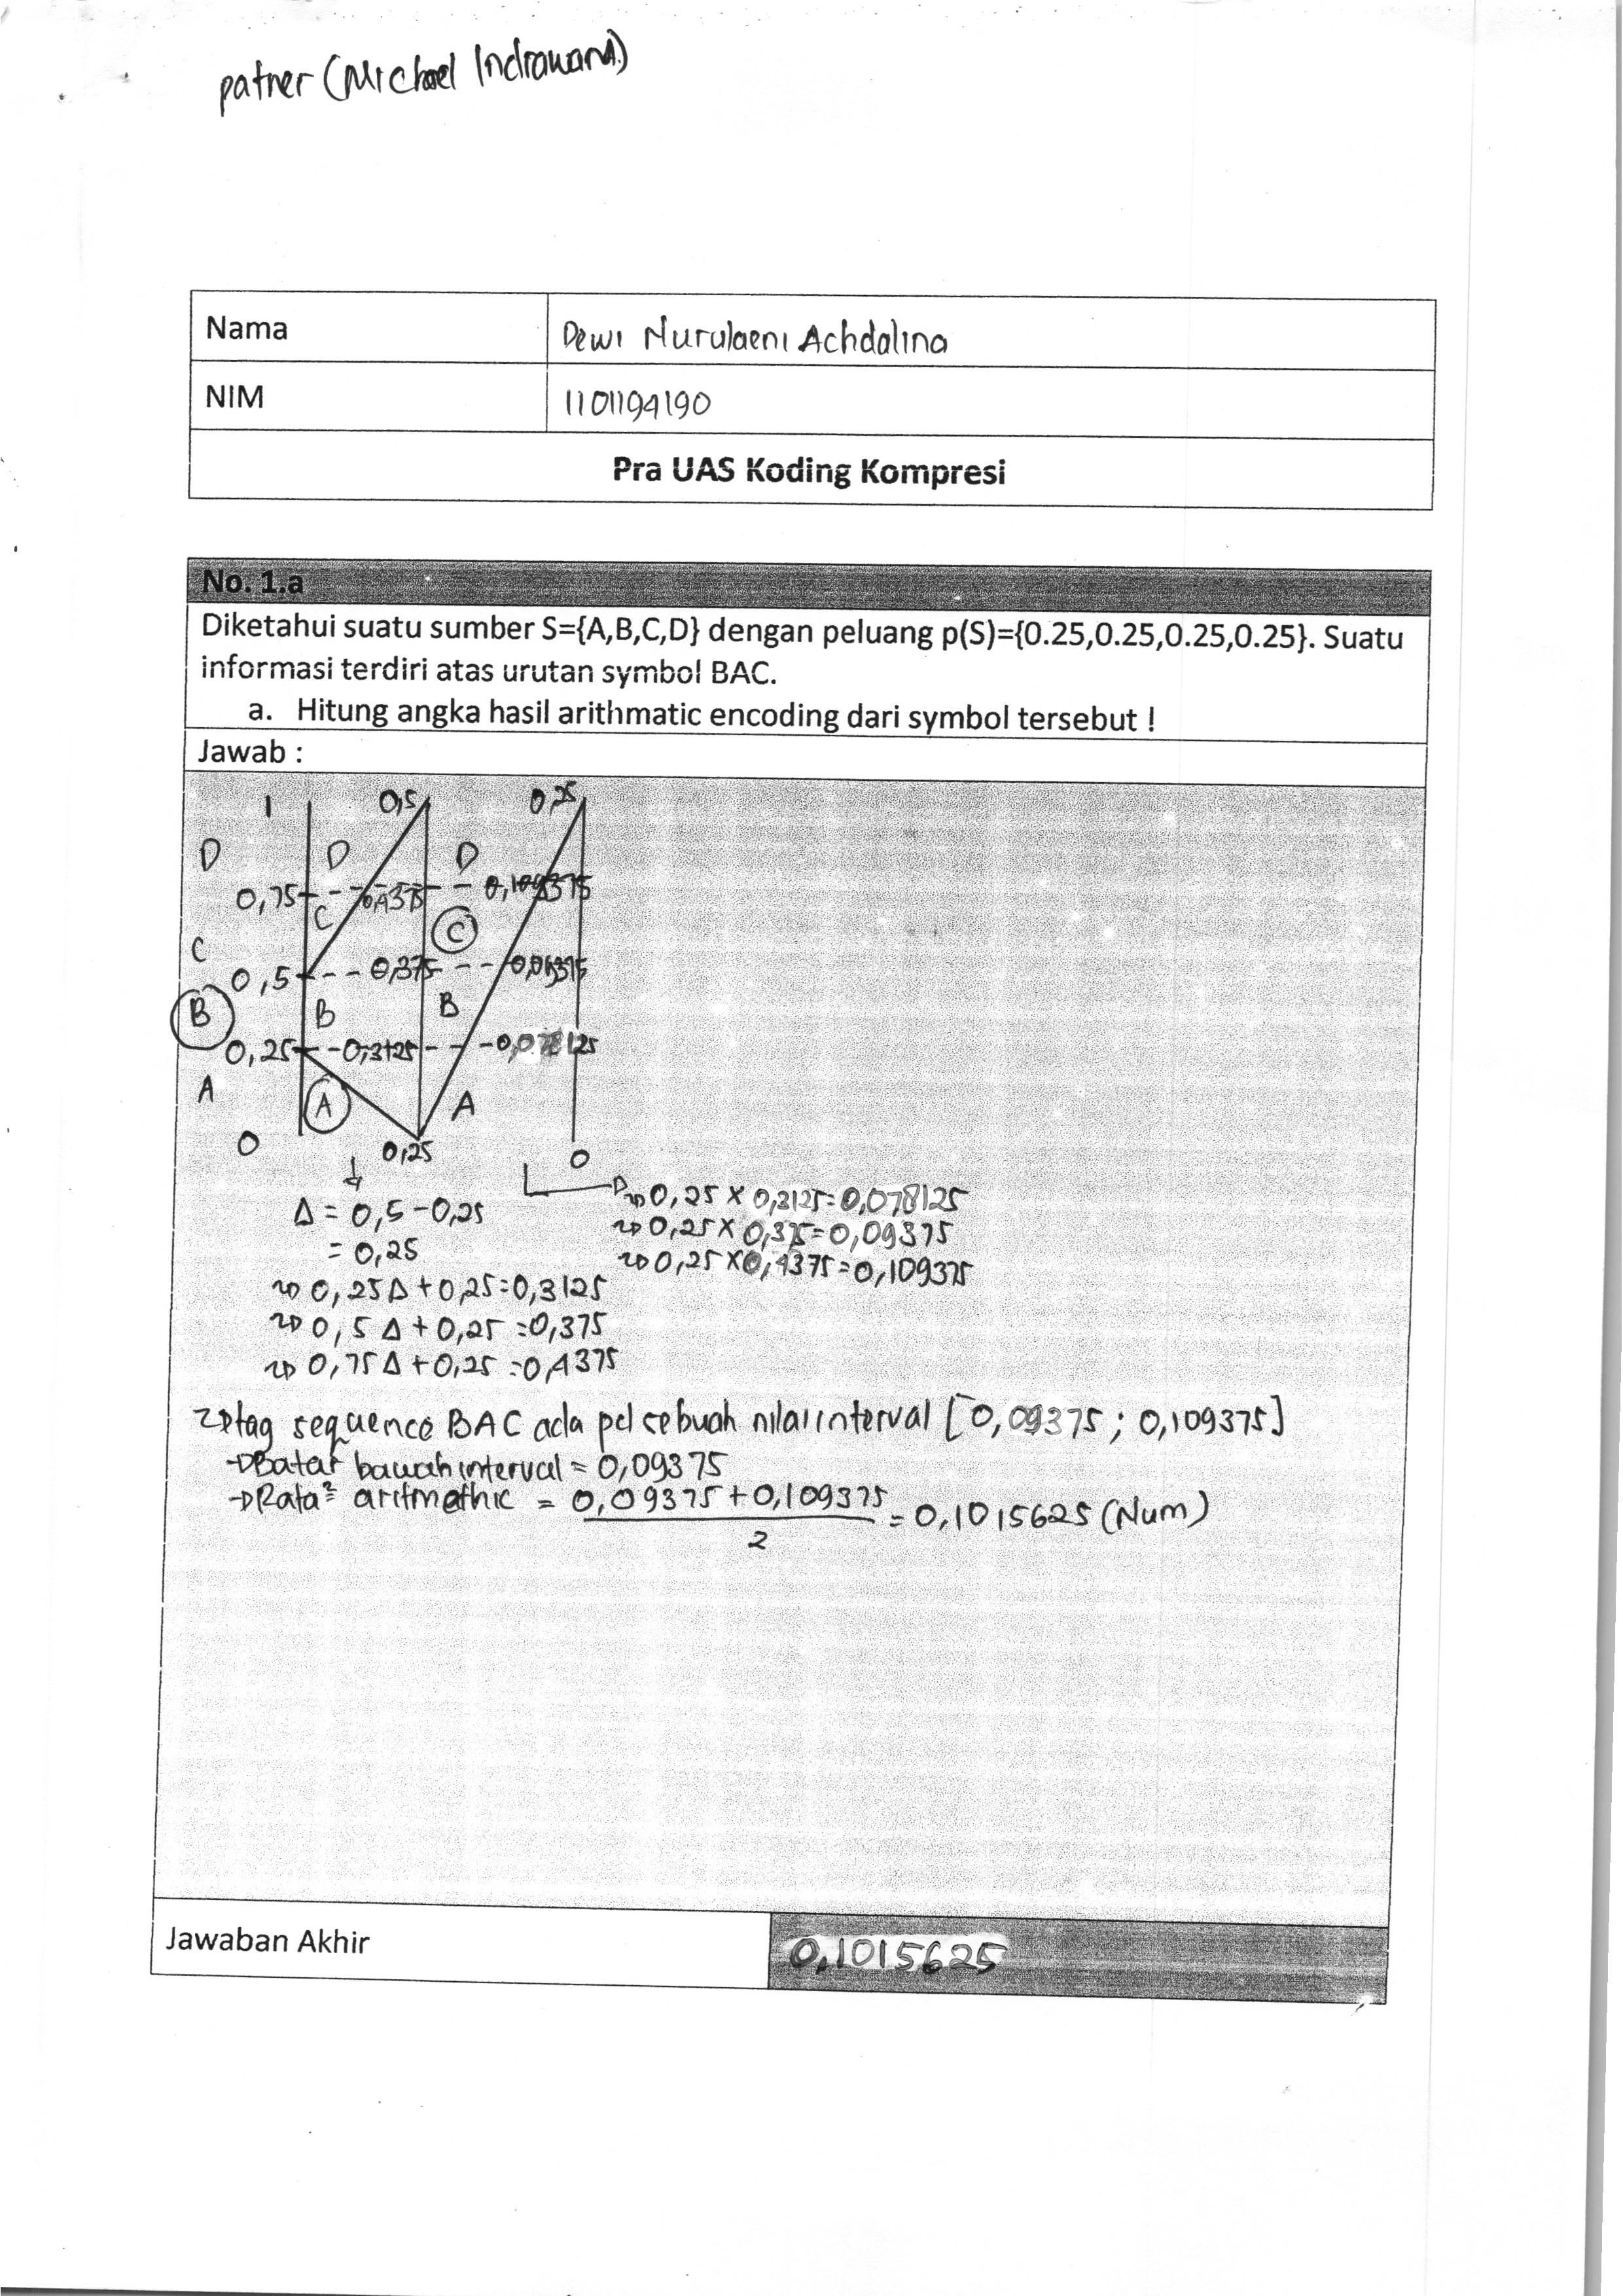 patner (Michael Indrawana)
Nama
Dewi Nurulaeni Achdalina
NIM
1101194190
Pra UAS Koding Kompresi
No. 1.a
Diketahui suatu sumber S={A,B,C,D} dengan peluang p(S)={0.25,0.25,0.25,0.25}. Suatu
informasi terdiri atas urutan symbol BAC.
a. Hitung angka hasil arithmatic encoding dari symbol tersebut !
Jawab :
1 0,5 0,25
D D D
0,75 0,4375 0,109375
C C C
0,5 0,375 0,09375
B B B
0,25 0,3125 0,078125
A A A
0 0,25 0
Δ = 0,5 - 0,25
= 0,25
0,25Δ + 0,25 = 0,3125
0,5 Δ + 0,25 = 0,375
0,75 Δ + 0,25 = 0,4375
0,25 x 0,3125 = 0,078125
0,25 x 0,375 = 0,09375
0,25 x 0,4375 = 0,109375
tag sequence BAC ada pd sebuah nilai interval [0,09375 ; 0,109375]
Batas bawah interval = 0,09375
Rata² aritmethic = 0,09375 + 0,109375 / 2 = 0,1015625 (Num)
Jawaban Akhir
0,1015625